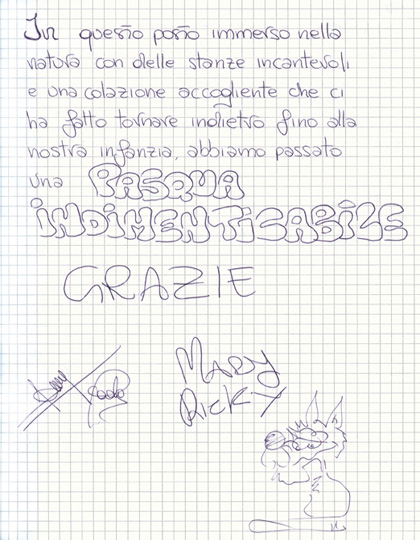 In questo posto immerso nella
natura con delle stanze incantevoli
e una colazione accogliente che ci
ha fatto tornare indietro fino alla
nostra infanzia, abbiamo passato
una PASQUA
INDIMENTICABILE
GRAZIE
Paolo
MARY
RICKY